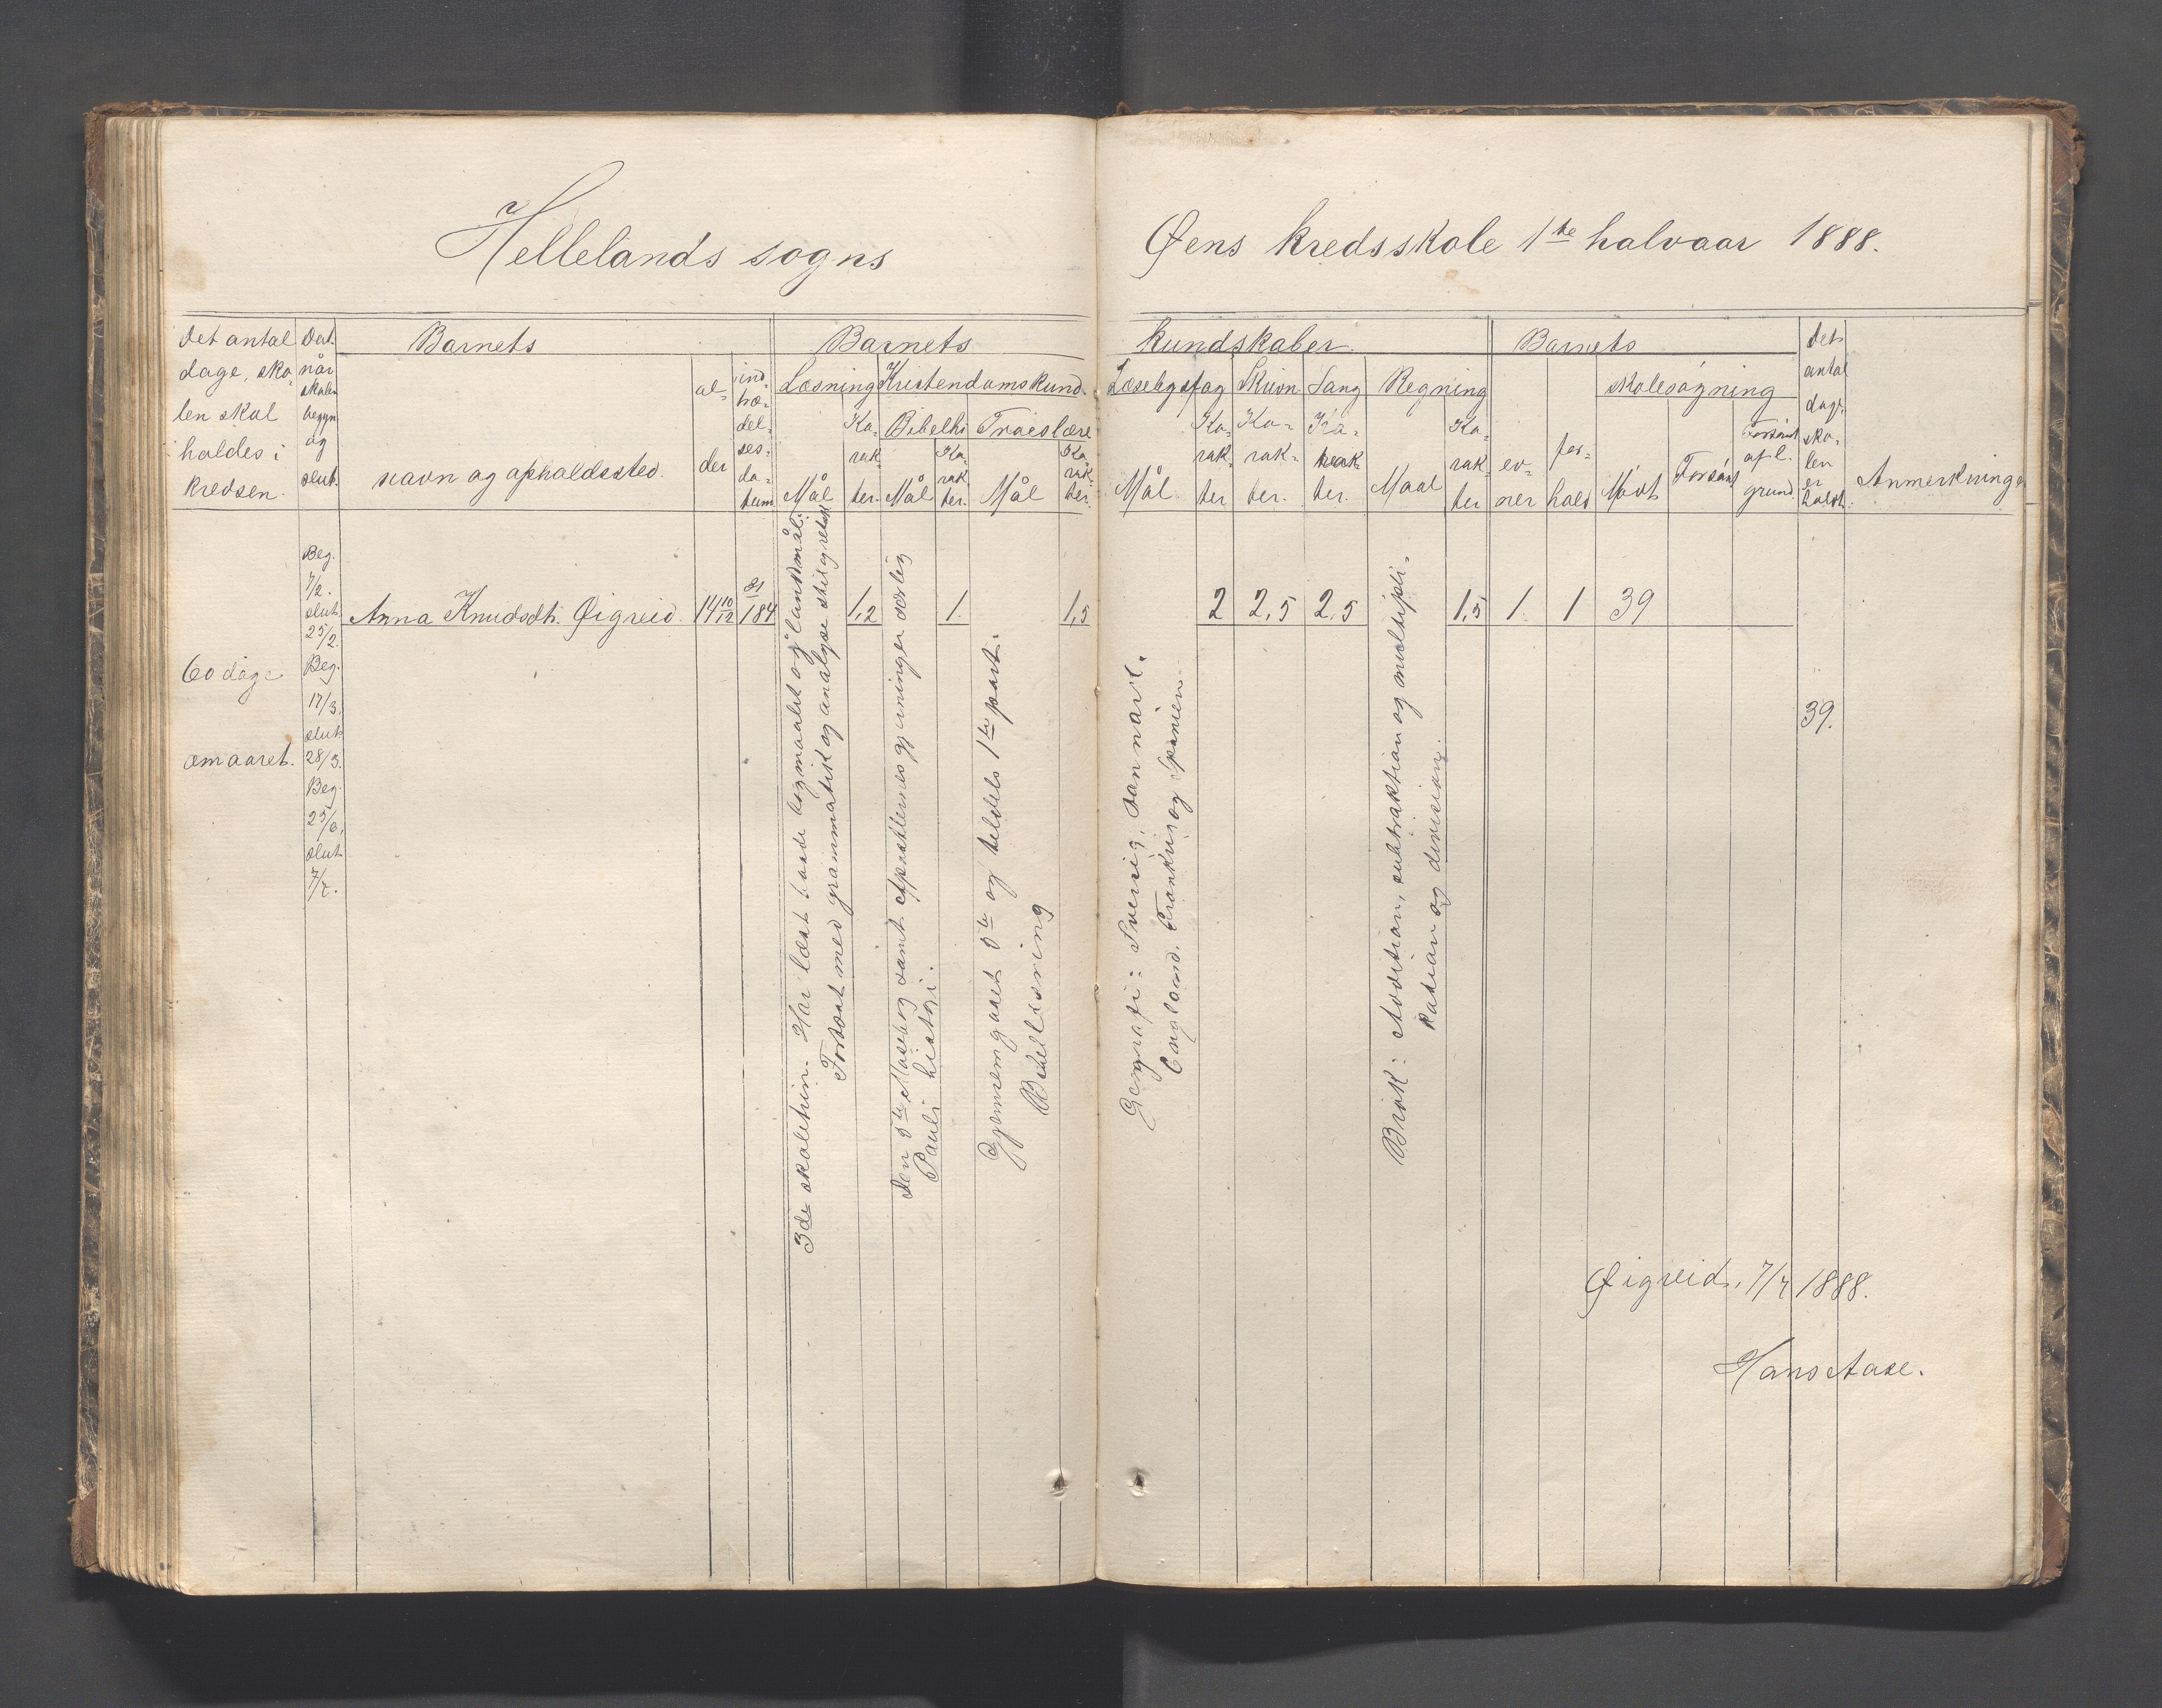 Hellelands sogns
Øens kredsskole 1ste halvaar 1888.
Det antal
dage, sko-
len skal
holdes i
kredsen.
Dat.
når
skolen
begyn
og
slut.
Barnets
navn og opholdssted.
al-
der
ind-
træ-
del-
ses-
da-
tum
Barnets
Læsning
Mål
Ka-
rak-
ter.
Kristendomskund-
Bibelhi
Mål
Ka-
rak
ter.
Troeslære
Mål
Ka-
rak-
ter.
kundskaber.
Læsebogsfag
Mål
Ka-
rak-
ter
Skrivn
Ka-
rak-
ter.
Sang
Ka-
rak-
ter.
Regning
Maal
Ka-
rak-
ter
Barnets
ev-
ner
for-
hold
skolesøgning
Mødt
Forsømt
Forsømt
af l.
grund
det
antal
dage
sko-
len
er
holdt.
Anmerkninger
60 dage
om aaret.
Beg.
7/2.
slut.
25/2.
Beg.
17/3.
slut.
28/3.
Beg.
25/6.
slut
7/7.
Anna Knudsdt. Øigreid. 14 10/12 /184 1,2 1. 1,5 2 2,5 2,5 1,5 1. 1 39
39.
3de skoletrin. Har læst baade bogmaalet og landsmål.
Fortsat med grammatik og analyse
Den 5te Mosebog samt Apostlernes gjerninger særlig
Pauli histori.
Gjennemgaaet 5te og teldels 1ste part.
Geografi: Sverrig, Danmark.
England. Frankrig og Spanien.
Brøk: Addition, subtraktion og multipli-
kation og division.
Øigreid, 7/7 1888.
Hans Aase.